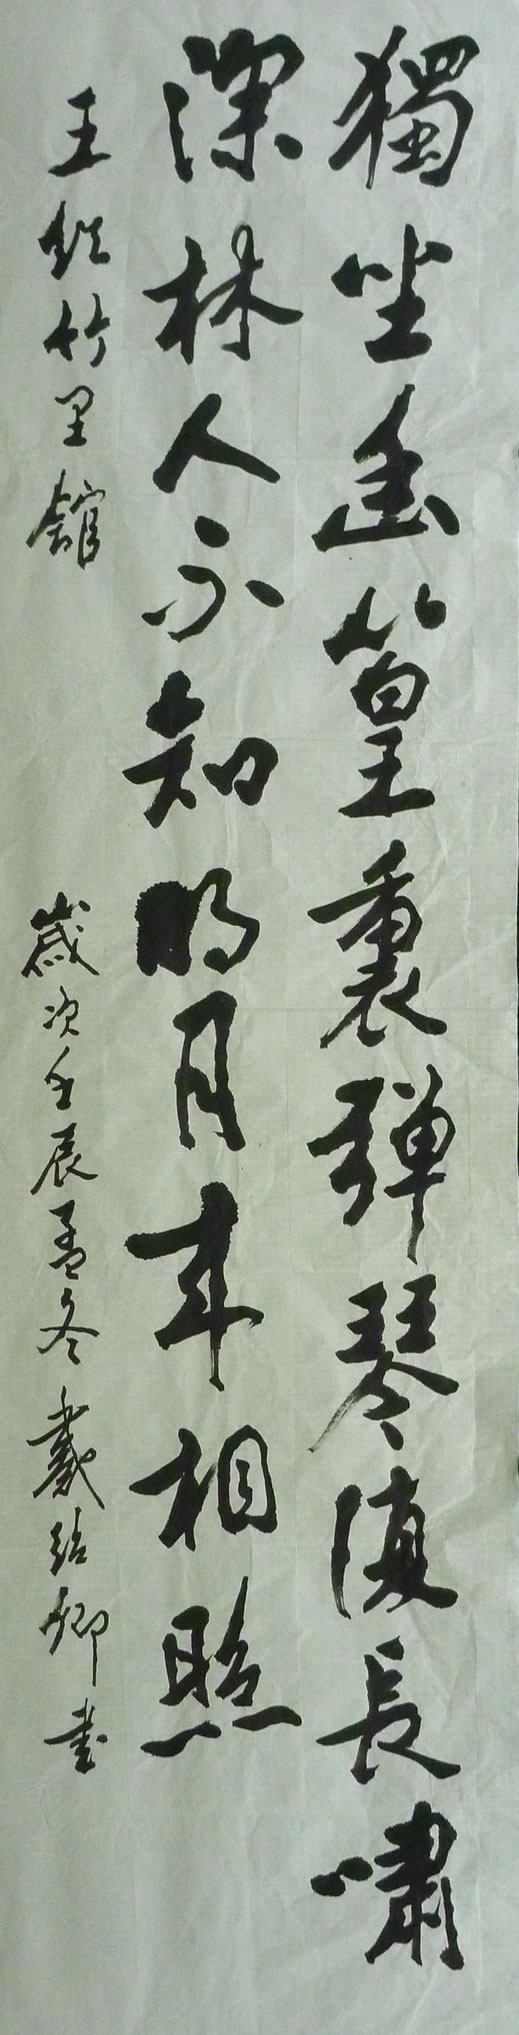 獨坐幽篁裏彈琴復長嘯
深林人不知明月来相照
王維竹里館
歲次壬辰孟冬戴紹卿書